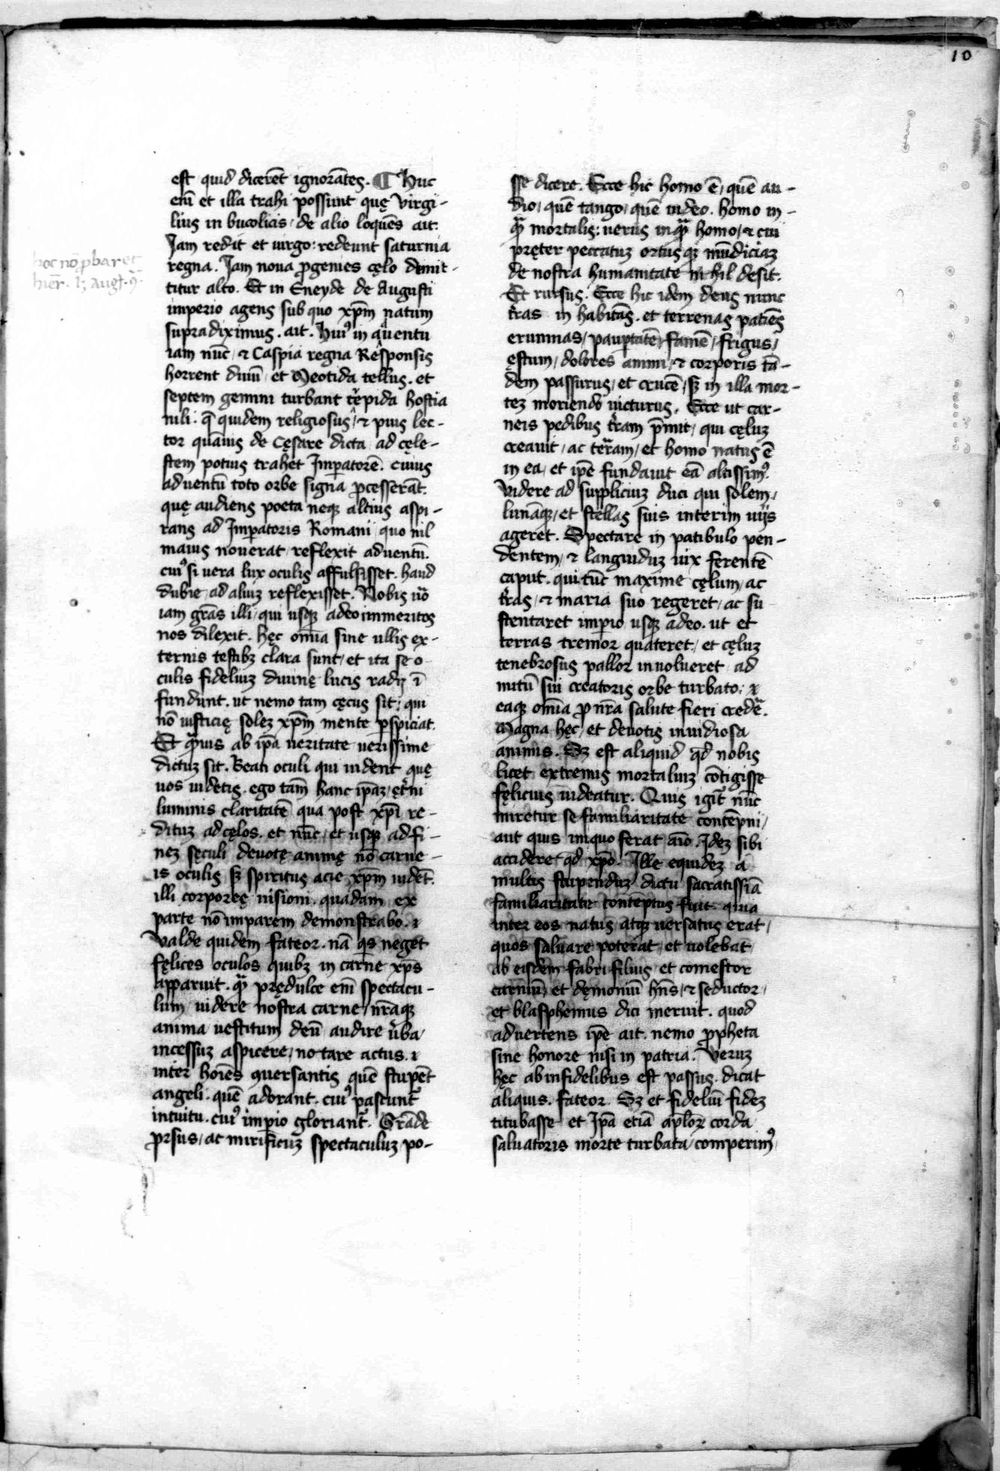 10
est quid dicerēt ignorātes. ¶ Huc
em̄ et illa trahi possunt quę Virgi-
lius in bucolicis / de alio loquēs ait:
Jam redit et uirgo: redeunt saturnia
regna. Jam noua ꝓgenies cęlo demit-
titur alto. Et in Eneyde de Augusti
imperio agens sub quo xp̄m natum
supradiximus. ait. Huiꝰ in aduentu
iam nūc / et Caspia regna Respōnsis
horrent diuū / et Meotida tellus. et
septem gemini turbant trepida hostia
nili. qđ quidem religiosus / et pius lec-
tor quāuis de Cęsare dicta / ad cęle-
stem potius trahet Imꝑatorē. cuius
aduentū toto orbe signa p̄cesserāt.
quę audiens poeta neqꝫ altius aspi-
rans ad Imꝑatoris Romani / quo nil
maius nouerat / reflexit aduentū.
cuiꝰ si uera lux oculis affulsisset. haud
dubie / ad aliuꝫ reflexisset. Nobis uō
iam gr̄as illi / qui usqꝫ adeo immeritos
nos dilexit. hęc om̄ia sine ullis ex-
ternis testibꝫ clara sunt / et ita se o-
culis fideliuꝫ diuinę lucis radij ī
fundunt. ut nemo tam cęcus sit / qui
nō iusticię solez xp̄m mente ꝑspiciat.
Et q̄̄uis ab ip̄a ueritate uerissime
dictuꝫ sit. Beati oculi qui uident quę
uos uidetis. ego tam̄ hanc ip̄aꝫ / et̄ni
luminis claritatē qua post xp̄i re-
dituꝫ ad cęlos. et nūc / et usqꝫ ad fi-
neꝫ sęculi deuotę animę nō carne-
is oculis / sꝫ spiritus acie xp̄m uidēt.
illi corporeę uisioni. quadam / ex
parte nō imparem demonstrabo. et
Valde quidem fateor. nā q̄s neget
fęlices oculos quibꝫ in carne xp̄s
apparuit. q̄̄ prędulce em̄ spectacu-
lum / uidere nostra carne / nr̄aqꝫ
anima uestitum deū / audire u̇ba /
incessuꝫ aspicere / notare actus. et
inter hoīes conuersantis quē stupēt
angeli. quē adorant. cuiꝰ pascunt̄
intuitu. cuiꝰ imꝑio gloriant̄. Grāde
ꝓrsus / ac mirificuꝫ spectaculuꝫ po-
sse dicere. Ecce hic homo ē / quē au-
dio / quē tango / quē uideo. homo in-
q̄̄ mortalis: uerus inq̄̄ homo / et cui
pręter peccatuꝫ ortusqꝫ mūdiciaꝫ
de nostra humanitate nihil desit.
Et rursus. Ecce hic idem deus nunc
tras in habitās. et terrenas patiēs
erumnas / pauꝑtatē / famē / frigus /
ęstum / dolores animi / et corporis tā-
dem passurus / et crucē / sꝫ in illa mor-
teꝫ moriendo uicturus. Ecce ut car-
neis pedibus tram p̄mit / qui cęluꝫ
creauit / ac terram / et homo natus ē
in ea / et ip̄e fundauit eā altissimꝰ.
Videre ad suppliciuꝫ duci qui solem /
lunāqꝫ / et stellas suis interim uijs
ageret. Spectare in patibulo pen-
dentem / et languiduꝫ uix ferentē
caput. qui tūc maxime cęlum / ac
tras / et maria suo regeret / ac su
stentaret imꝑio usqꝫ adeo. ut et
terras tremor quateret / et cęluꝫ
tenebrosus pallor inuolueret ad
nutū sui creatoris orbe turbato: et
eaqꝫ om̄ia ꝓ nr̄a salute fieri credeē.
Magna hęc / et deuotis inuidiosa
animis. Sꝫ est aliquid qđ nobis
licet extremis mortaliuꝫ cōtigisse
fęlicius uideatur. Quis igit̄ nūc
miretur se familiaritate contēpni /
aut quis iniquo ferat aīo. Ideꝫ sibi
accidere qđ xp̄o. Ille equideꝫ a
multis stupenduꝫ dictu sacratissīa
familiaritate contēptus fuit. quia
inter eos natus atqꝫ uersatus erat /
quos saluare poterat / et uolebat
ab eisdem fabri filius et comestor
carnium / et dęmoniū hn̄s / et seductor /
et blasphemus dici meruit. quod
aduertens ip̄e ait. nemo ꝓpheta
sine honore nisi in patria. Veruꝫ
hęc ab infidelibus est passus. dicat
aliquis. fateor. Sꝫ et fideliū fideꝫ
titubasse et Ip̄a etiā aplo℞ corda
saluatoris morte turbata / comperimꝰ
hoc no ꝓbaret
hier.